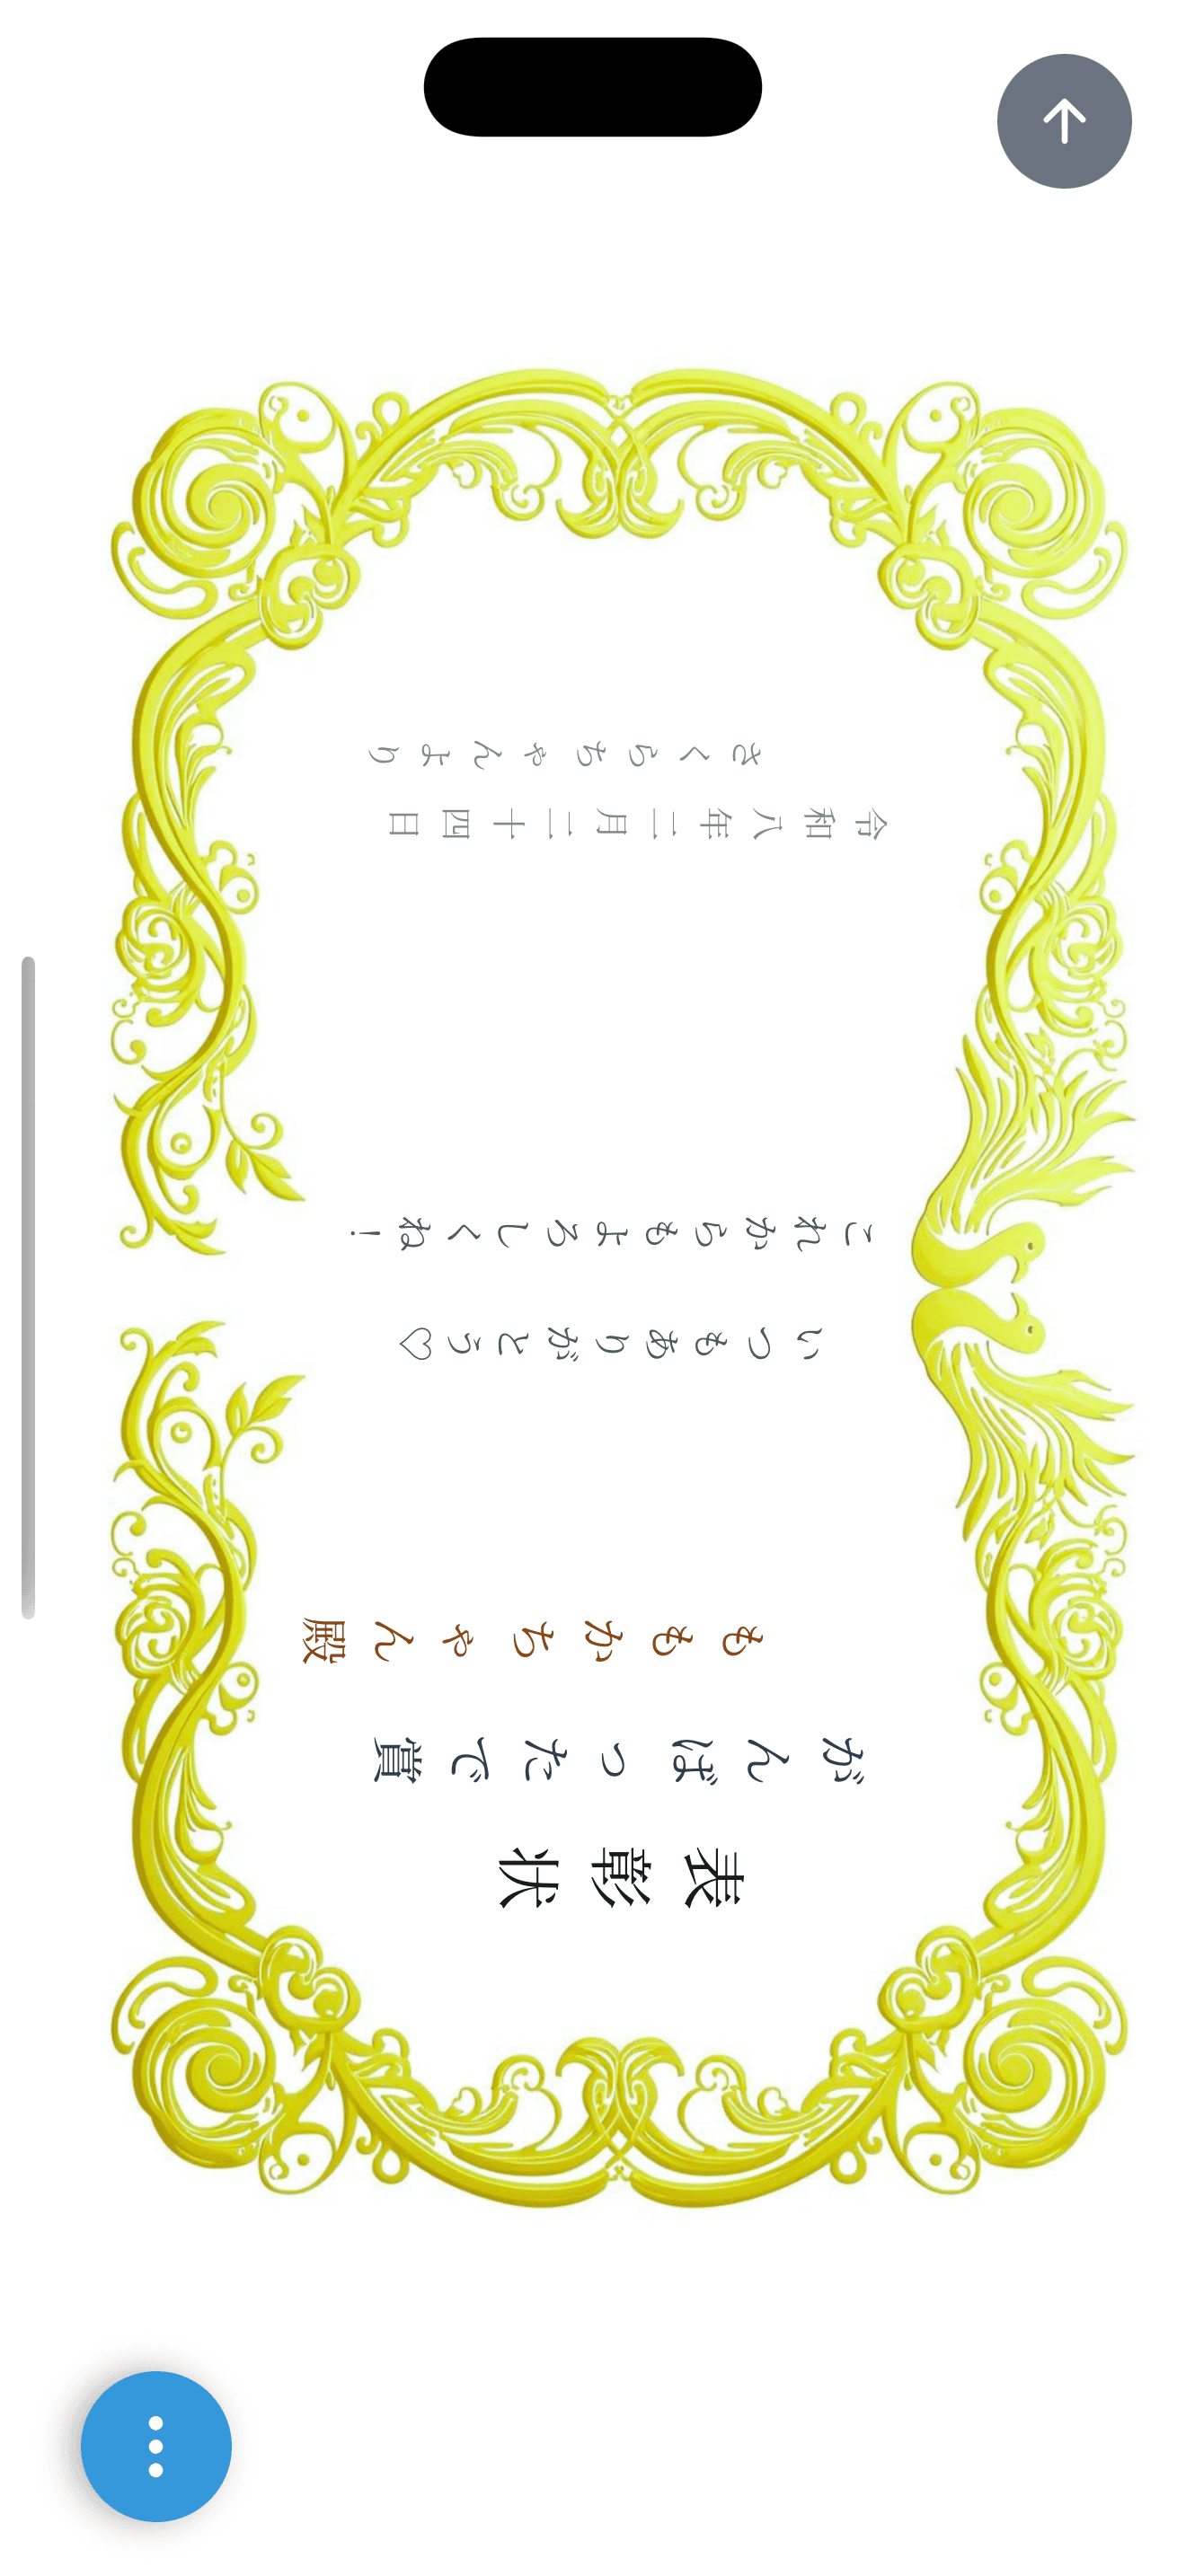 表彰状
がんばったで賞
ももかちゃん殿
いつもありがとう♡
これからもよろしくね！
令和八年二月二十四日
さくらちゃんより